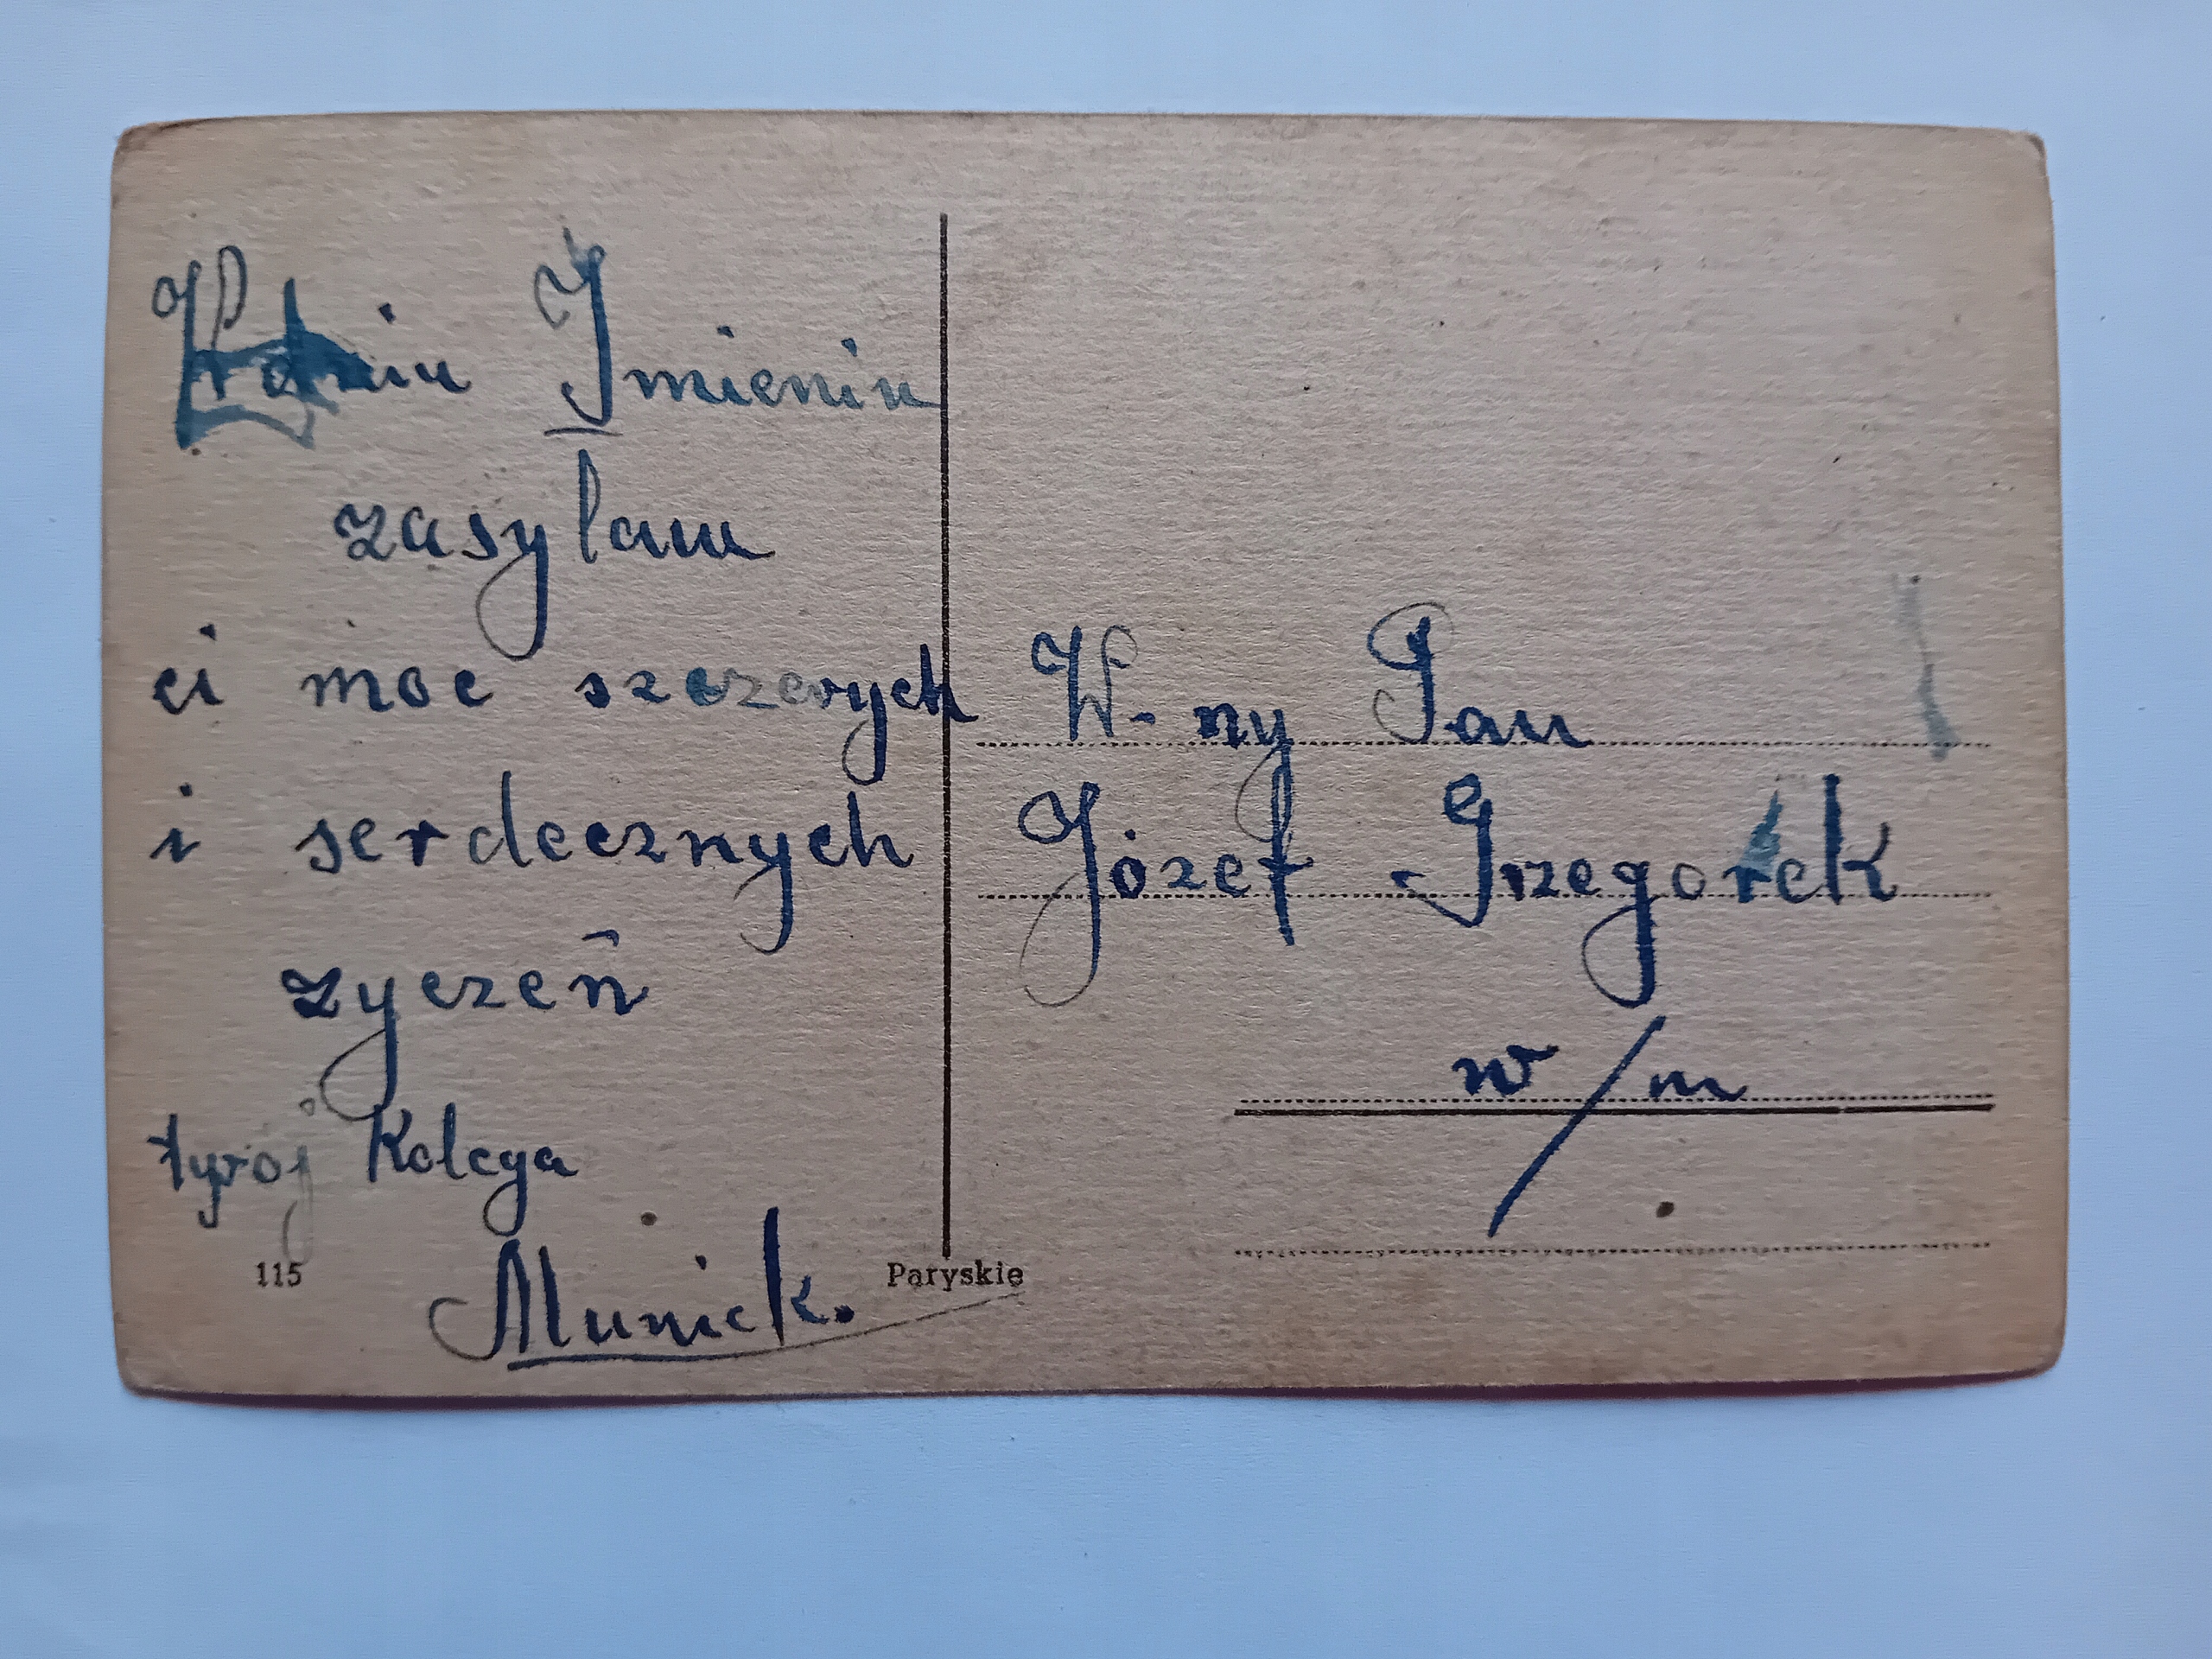 W dniu Imieniu
zasylam
ci moc szczerych
i serdecznych
zyczeń
twój Kolega
Munick.
115
Paryskie
W-ny Pan
Józef Grzegorek
w/m